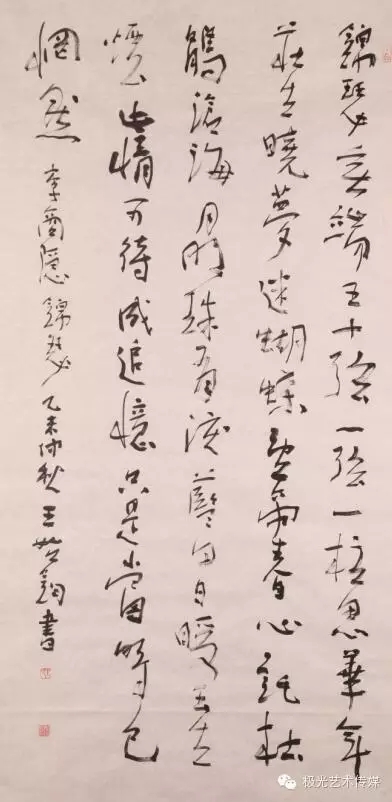 錦瑟无端五十弦一弦一柱思華年
莊生曉夢迷蝴蝶望帝春心託杜
鵑滄海月明珠有淚藍田日暖玉生
煙此情可待成追憶只是當時已
惘然 李商隱錦瑟 乙未仲秋 王 書
极光艺术传媒